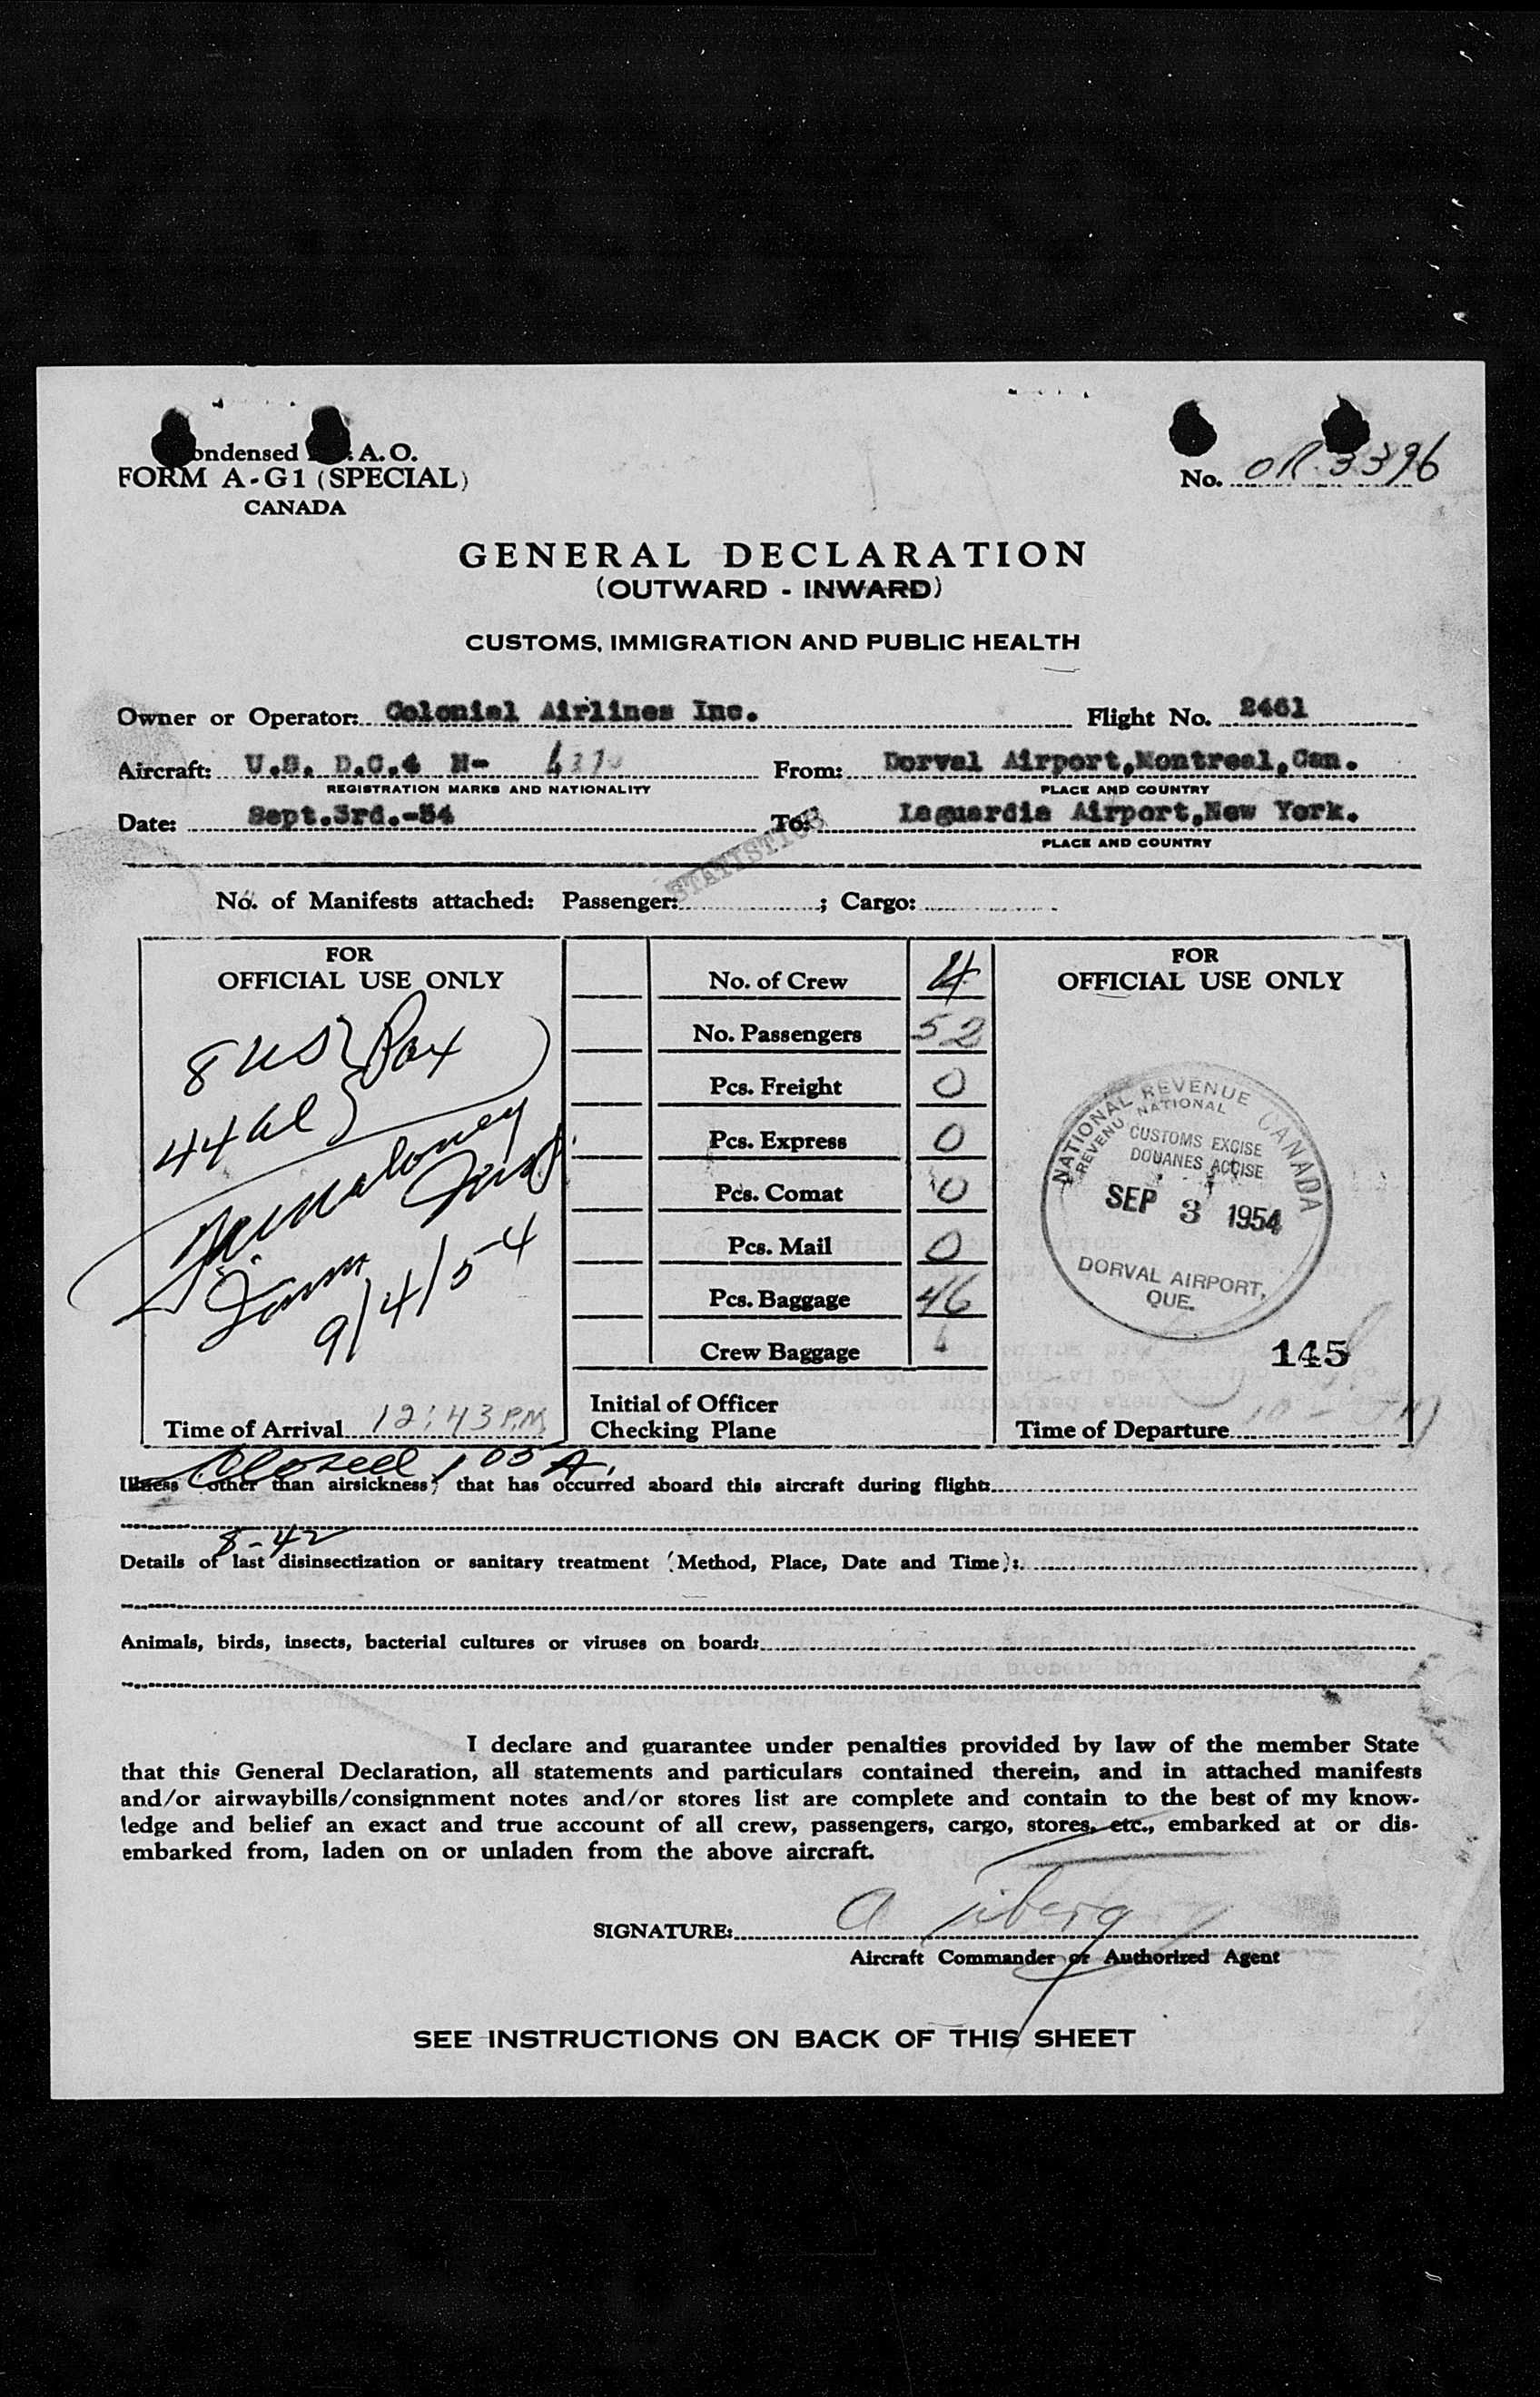 ondensed A. O.
FORM A-G1 (SPECIAL)
CANADA
No. OR 3396
GENERAL DECLARATION
(OUTWARD - INWARD)
CUSTOMS, IMMIGRATION AND PUBLIC HEALTH
Owner or Operator: Colonial Airlines Inc. Flight No. 2461
Aircraft: U.S. D.C.4 N- From: Dorval Airport,Montreal,Can.
REGISTRATION MARKS AND NATIONALITY PLACE AND COUNTRY
Date: Sept.3rd.-54 To: Laguardia Airport,New York.
PLACE AND COUNTRY
STATISTICS
No. of Manifests attached: Passenger: ; Cargo:
FOR
OFFICIAL USE ONLY
8 US } Pax
44 al
9/4/54
Time of Arrival 12:43 P.M
No. of Crew 4
No. Passengers 52
Pcs. Freight 0
Pcs. Express 0
Pcs. Comat 0
Pcs. Mail 0
Pcs. Baggage 46
Crew Baggage
Initial of Officer
Checking Plane
FOR
OFFICIAL USE ONLY
NATIONAL REVENUE CANADA
REVENU NATIONAL
CUSTOMS EXCISE
DOUANES ACCISE
SEP 3 1954
DORVAL AIRPORT,
QUE.
145
Time of Departure
Closed 105 A.
Illness (other than airsickness) that has occurred aboard this aircraft during flight:
8-42
Details of last disinsectization or sanitary treatment (Method, Place, Date and Time):
Animals, birds, insects, bacterial cultures or viruses on board:
I declare and guarantee under penalties provided by law of the member State
that this General Declaration, all statements and particulars contained therein, and in attached manifests
and/or airwaybills/consignment notes and/or stores list are complete and contain to the best of my know-
ledge and belief an exact and true account of all crew, passengers, cargo, stores, etc., embarked at or dis-
embarked from, laden on or unladen from the above aircraft.
SIGNATURE:
Aircraft Commander or Authorized Agent
SEE INSTRUCTIONS ON BACK OF THIS SHEET